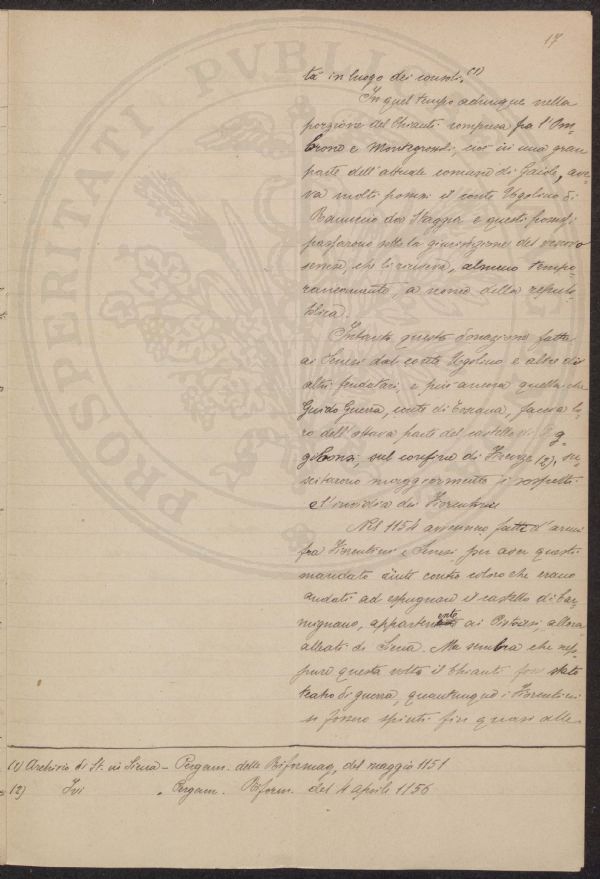 17
tà in luogo dei consoli. (1)
In quel tempo adunque nella
porzione del Chianti compresa fra l'Om-
brone e Montegrossoli, cioè in una gran
parte dell'attuale comune di Gaiole, ave-
va molti possessi il conte Ugolino di
Ranuccio da Staggia e questi possessi
passarono sotto la giurisdizione del vescovo
senese, che li riceveva, almeno tempo-
raneamente, a nome della repub-
blica.
Intanto questa donazione fatta
ai Senesi dal conte Ugolino e altre di
altri feudatari, e più ancora quella che
Guido Guerra, conte di Toscana, faceva lo-
ro dell'ottava parte del castello di Pog-
gibonsi, sul confine di Firenze (2), su-
scitarono maggiormente i sospetti
e l'invidia dei Fiorentini
Nel 1154 avvenne fatto d'armi
fra Fiorentini e Senesi per aver questi
mandato aiuti contro coloro che erano
andati ad espugnare il castello di Car-
mignano, appartenente ai Pistoiesi, allora
alleati di Siena. Ma sembra che nep-
pure questa volta il Chianti fosse stato
teatro di guerra, quantunque i Fiorentini
si fossero spinti fin quasi alle
(1) Archivio di St. in Siena - Pergam. delle Riformag. del maggio 1151
(2) Ivi " Pergam. Riform. del 4 aprile 1156
PROSPERITATI PVBLICAE